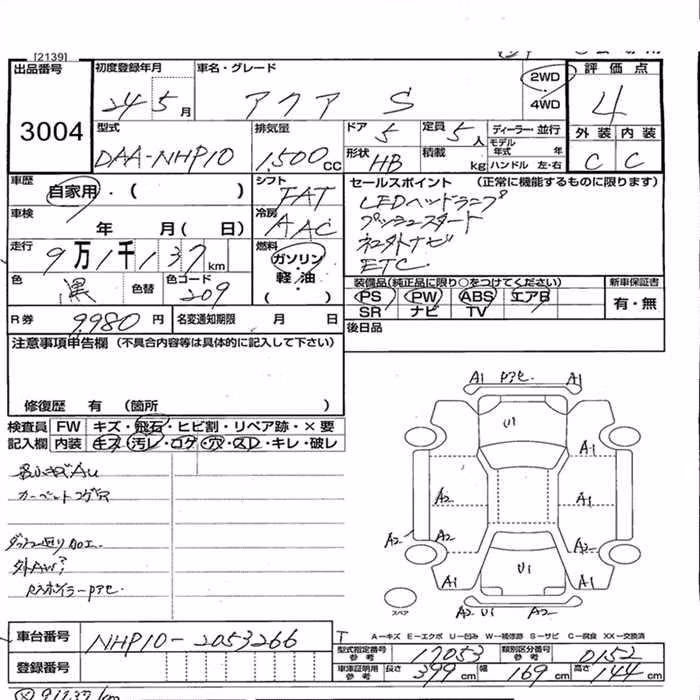 [2139]
出品番号
3004
初度登録年月
24 5月
車名・グレード
アクア S
2WD
・
4WD
評価点
4
外装 内装
C C
型式
DAA-NHP10
排気量
1,500 cc
ドア 5
定員 5人
ディーラー・並行
モデル年式 年
形状 HB
積載 kg
ハンドル 左・右
車歴
自家用・( )
シフト
FAT
セールスポイント (正常に機能するものに限ります)
LEDヘッドランプ
プッシュスタート
ETC
車検
年 月( 日)
冷房
AAC
走行
9万1千137km
燃料
ガソリン
・
軽・油
( )
色
黒
色替
色コード
209
装備品(純正品に限り○をつけてください)
新車保証書
PS PW ABS エアB
SR ナビ TV
有・無
R券 9,980円
名変通知期限 月 日
後日品
注意事項申告欄 (不具合内容等は具体的に記入して下さい)
修復歴 有 (箇所 )
検査員 FW キズ・飛石・ヒビ割・リペア跡・×要
記入欄 内装 キズ・汚レ・コゲ・穴・スレ・キレ・破レ
カーペットコゲ穴
A1 A1
U1
A1
A2 A1
A2 A2 A2
A1 U1 A1
スペア
A2 U1 A2
車台番号 NHP10-2053266
登録番号
A―キズ E―エクボ U―凹み W―補修跡 S―サビ C―腐食 XX―交換済
型式指定番号 参考 17053
類別区分番号 参考 0152
車庫証明用 参考 長さ 399cm 幅 169cm 高さ 144cm
91137km